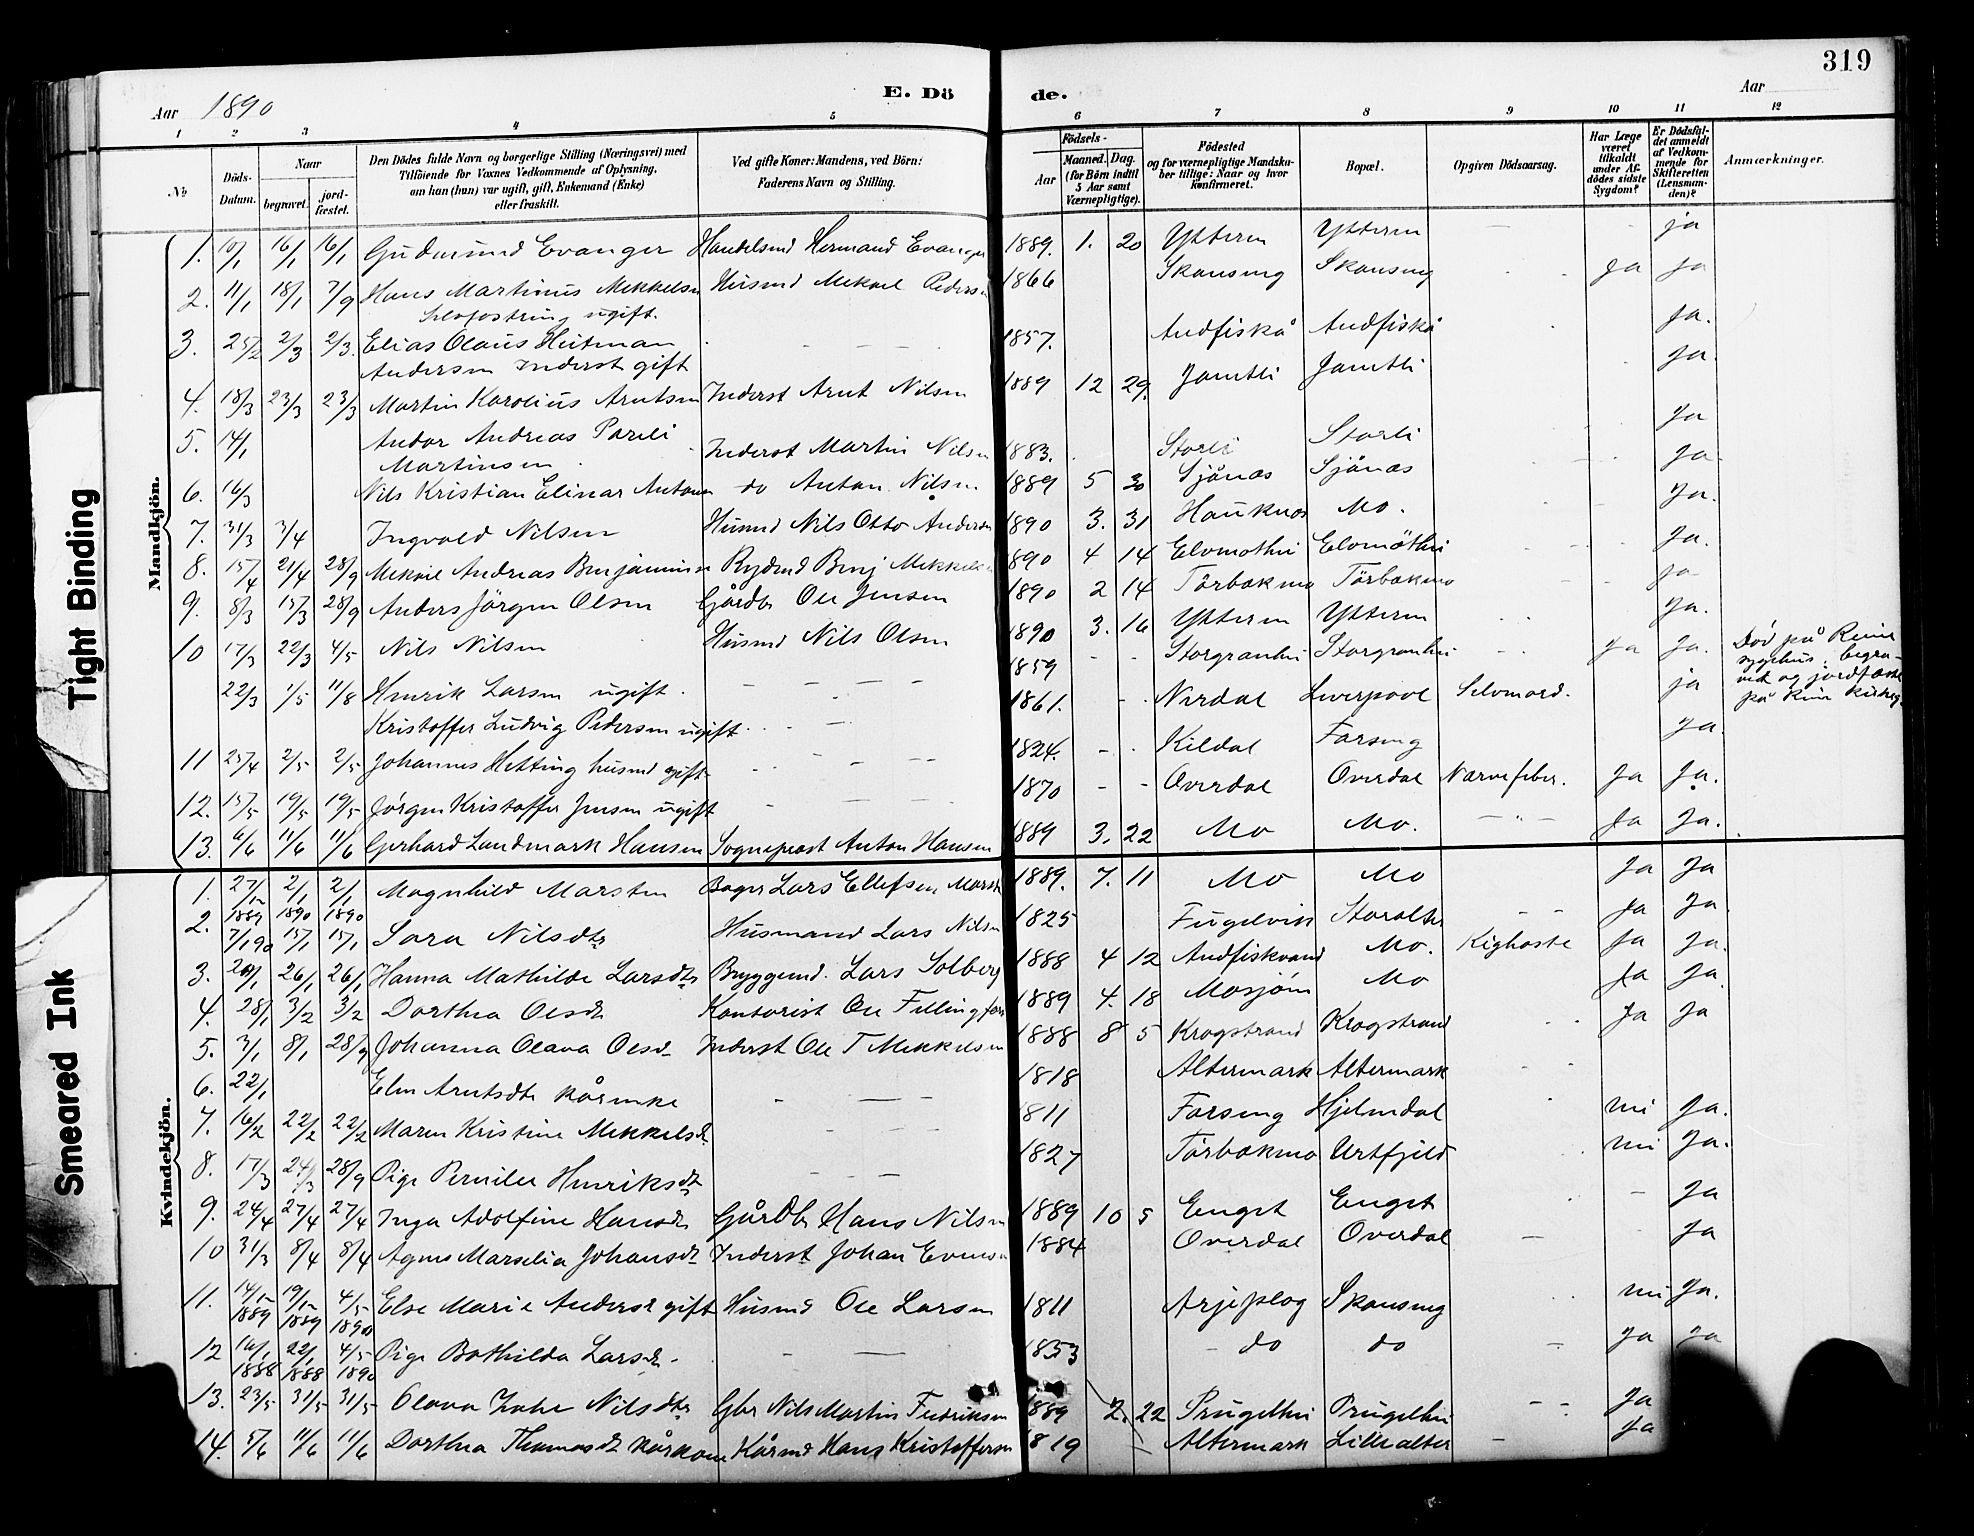 319
Aar 1890
E. Dö
de.
Aar
1 2 3 4 5 6 7 8 9 10 11 12
No
Döds-Datum.
Naar
begravet.
jord-fæstet.
Den Dödes fulde Navn og borgerlige Stilling (Næringsvei) med Tilföiende for Voxnes Vedkommende af Oplysning, om han (hun) var ugift, gift, Enkemand (Enke) eller fraskilt.
Ved gifte Koner: Mandens, ved Börn: Faderens Navn og Stilling.
Födsels-
Aar
Maaned. Dag. (for Börn indtil 5 Aar samt Værnepligtige).
Födested og for værnepligtige Mandskaber tillige: Naar og hvor konfirmeret.
Bopæl.
Opgiven Dödsaarsag.
Har Læge været tilkaldt under Afdödes sidste Sygdom?
Er Dödsfaldet anmeldt af Vedkommende for Skifteretten (Lensmanden)?
Anmærkninger.
Mandkjön.
1. 10/1 16/1 16/1 Gudmund Evanger Handelsmd Hermand Evanger 1889. 1. 20 Ytteren Ytteren ja
2. 11/1 18/1 7/9 Hans Martinus Mekkelsen Husmd Mekael Pedersen 1866 Skonseng Skonseng Ja ja
ugift.
3. 25/2 2/3 2/3. Elias Olaus Heitman 1857. Andfiskå Andfiskå Ja.
Andersen Inderst gift
4. 18/3 23/3 23/3 Martin Karolius Arntsen Inderst Arnt Nilsen 1889 12 29. Jamtli Jamtli Ja.
5. 14/1 Andor Andreas Pareli Inderst Martin Nilsen 1883. Storli Storli Ja
Martinsen
6. 16/3 Nils Kristian Elinar Antonsen do Anton Nilsen 1889 5 30 Sjånæs Sjånæs Ja
7. 31/3 3/4 Ingvald Nilsen Husmd Nils Otto Andersen 1890 3. 31 Hauknes Mo. Ja.
8. 15/4 21/4 28/9 Mekael Andreas Benjaminsen Rydmd Benj Mekkelsen 1890 4 14 Ja.
9. 8/3 15/3 28/9 Anders Jörgen Olsen Gårdbr Ole Jensen 1890 2 14 Törbækmo Törbækmo Ja
10 17/3 22/3 4/5 Nils Nilsen Husmd Nils Olsen 1890 3. 16 Ytteren Ytteren Ja.
22/3 1/5 11/8 Henrik Larsen ugift. 1859 Storgranhei Storgranhei Ja Ja. Död på Reine sygehus; begravet og jordfæstet på Reine kirkeg.
Kristoffer Ludvig Pedersen ugift. 1861. Nerdal Liverpool Selvmord. ja
11 25/4 2/5 2/5 Johannes Hetting husmd gift 1824. Kildal Forseng Ja.
12. 15/5 19/5 19/5 Jörgen Kristoffer Jensen ugift 1870 Overdal Overdal Nervefeber. Ja Ja.
13. 6/6 11/6 11/6 Gerhard Landmark Hansen Sogneprest Anton Hansen 1889 3. 22 Mo Mo. Ja Ja.
Kvindekjön.
1. 27/12 1889 2/1 1890 2/1 1890 Magnhild Marsten Bager Lars Ellefsen Marsten 1889. 7. 11 Mo Mo Ja Ja
2. 7/1 90 15/1 15/1 Sara Nilsdtr Husmand Lars Nilsen 1825 Fugelvik Storalter Ja Ja.
3. 20/1 26/1 26/1 Hanna Mathilde Larsdtr Bryggemd. Lars Solberg 1888 4 12 Andfiskvand Mo. Kighoste Ja Ja.
4. 28/1 3/2 3/2 Dorthea Olsdtr Kontorist Ole Fellingfors 1889 4. 18 Mosjøen Mo Ja Ja.
5. 3/1 8/1 28/9 Johanna Olava Olsdtr Inderst Ole T Mekkelsen 1888 8 5 Krogstrand Krogstrand Ja Ja
6. 22/1 Elen Arntsdtr kårenke 1818 Altermark Altermark
7. 16/2 22/2 22/2 Maren Kristine Mekkelsdtr 1811 Forseng Hjelmdal nei Ja.
8. 17/3 24/3 28/9 Pige Pernille Henriksdtr 1827 Törbækmo Urtfjeld nei Ja.
9. 24/4 27/4 27/4 Inga Adolfine Hansdtr Gårdbr Hans Nilsen 1889 10 5 Enget Enget Ja
10 31/3 8/4 8/4 Agnes Marselia Johansdtr Inderst Johan Evensen 1884 Overdal Overdal Ja
11. 14/12 1889 19/12 1889 4/5 1890 Else Marie Andersdtr gift Husmd Ole Larsen 1811 Arjeplog Skonseng nei Ja.
12 16/1 1888 22/1 1888 4/5 1890 Pige Bothilda Larsdtr 1853 do do Ja Ja
13. 23/5 31/5 31/5 Olava Nilsdtr Gbr Nils Martin Fredriksen 1889 2. 22 Prugelhei Prugelhei Ja
14. 5/6 11/6 11/6 Dorthea Thomasdtr kårkone Kårmd Hans Kristoffersen 1819 Altermark Lillealter Ja
Tight Binding
Smeared Ink